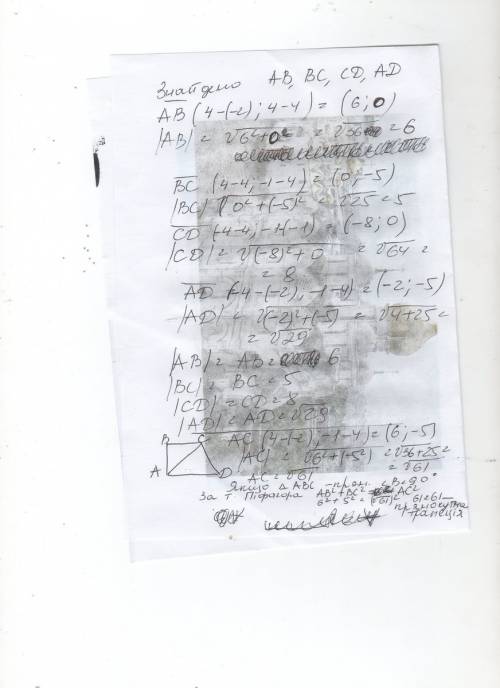 Знайдено AB, BC, CD, AD
AB (4-(-2); 4-4) = (6; 0)
|AB| = √6²+0² = √36 = 6
BC (4-4, -1-4) = (0, -5)
|BC| √0²+(-5)² = √25 = 5
CD (-4-4, -1-(-1) = (-8; 0)
|CD| = √(-8)²+0 = √64 =
= 8
AD (-4-(-2), -1-4) = (-2; -5)
|AD| = √(-2)²+(-5) = √4+25 =
= √29
|AB| = AB = 6
|BC| = BC = 5
|CD| = CD = 8
|AD| = AD = √29
B C AC (4-(-2), -1-4) = (6, -5)
|AC| = √6²+(-5²) = √36+25 =
A D AC = √61 = √61
Якщо Δ ABC -прям. ∠B=90°
За т Піфагора AB²+BC² = AC²
6²+5² = (√61)² 61=61-
прямокутна
трапеція